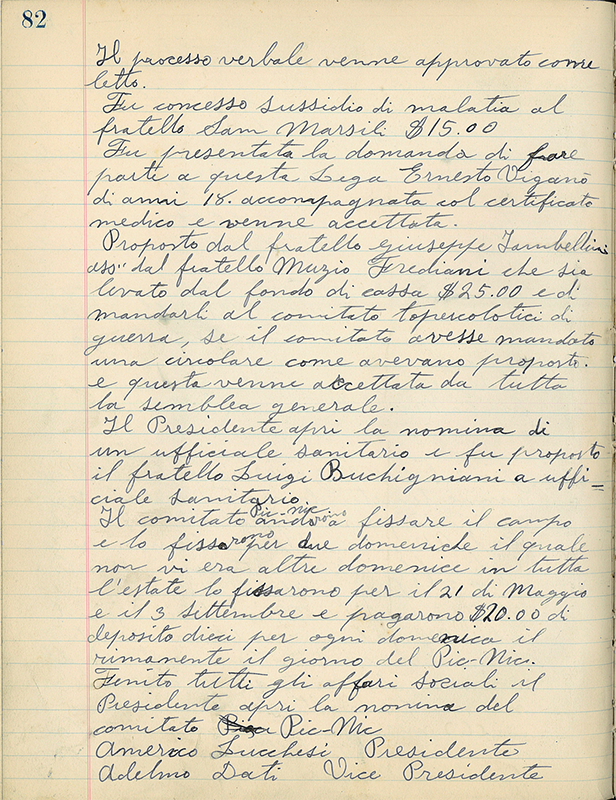 82
Il processo verbale venne approvato come
letto.
Fu concesso sussidio di malatia al
fratello Sam Marsili $15.00
Fu presentata la domanda di fare
parte a questa Lega Ernesto Viganò
di anni 18. accompagnata col certificato
medico e venne accettata.
Proposto dal fratello Giuseppe Tambellini
ass" dal fratello Muzio Frediani che sia
levato dal fondo di cassa $25.00 e di
mandarli al comitato topercolotici di
guerra, se il comitato avesse mandato
una circolare come avevano proposto.
e questa venne accettata da tutta
la semblea generale.
Il Presidente aprì la nomina di
un ufficiale sanitario e fu proposto
il fratello Luigi Buchigniani a uffi=
ciale sanitario.
Il comitato Pic-Nic andarono a fissare il campo
e lo fissarono per due domeniche il quale
non vi era altre domenice in tutta
l'estate lo fissarono per il 21 di Maggio
e il 3 Settembre e pagarono $20.00 di
deposito dieci per ogni domenica il
rimanente il giorno del Pic-Nic.
Finito tutti gli affari sociali il
Presidente aprì la nomina del
comitato Pic-Nic
Americo Lucchesi Presidente
Adelmo Dati Vice Presidente